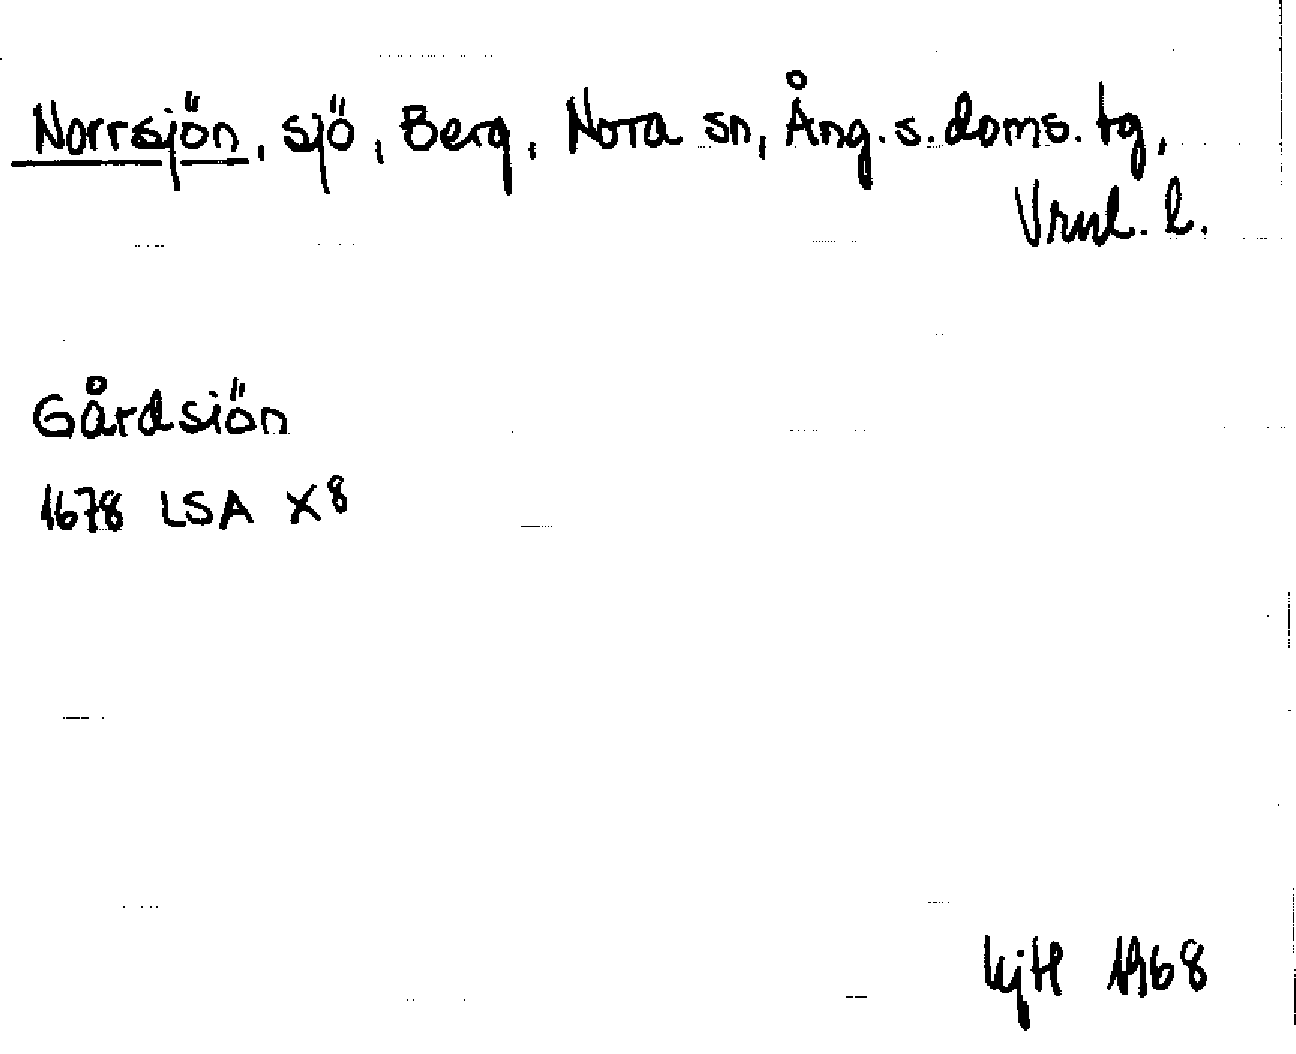 Norrsjön, sjö, Berg, Nora sn, Ång. s. doms. tg,
Vrnl. l.
Gårdsiön
1678 LSA X8
1968